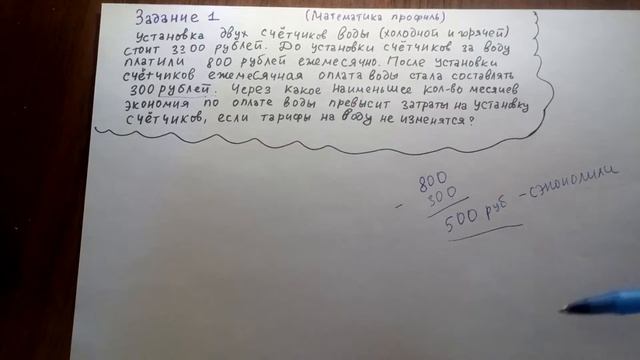 Задание 1 (Математика профиль)
Установка двух счётчиков воды (холодной и горячей)
стоит 3300 рублей. До установки счётчиков за воду
платили 800 рублей ежемесячно. После установки
счётчиков ежемесячная оплата воды стала составлять
300 рублей. Через какое наименьшее кол-во месяцев
экономия по оплате воды превысит затраты на установку
счётчиков, если тарифы на воду не изменятся?
800
- 300
500 руб - сэкономили